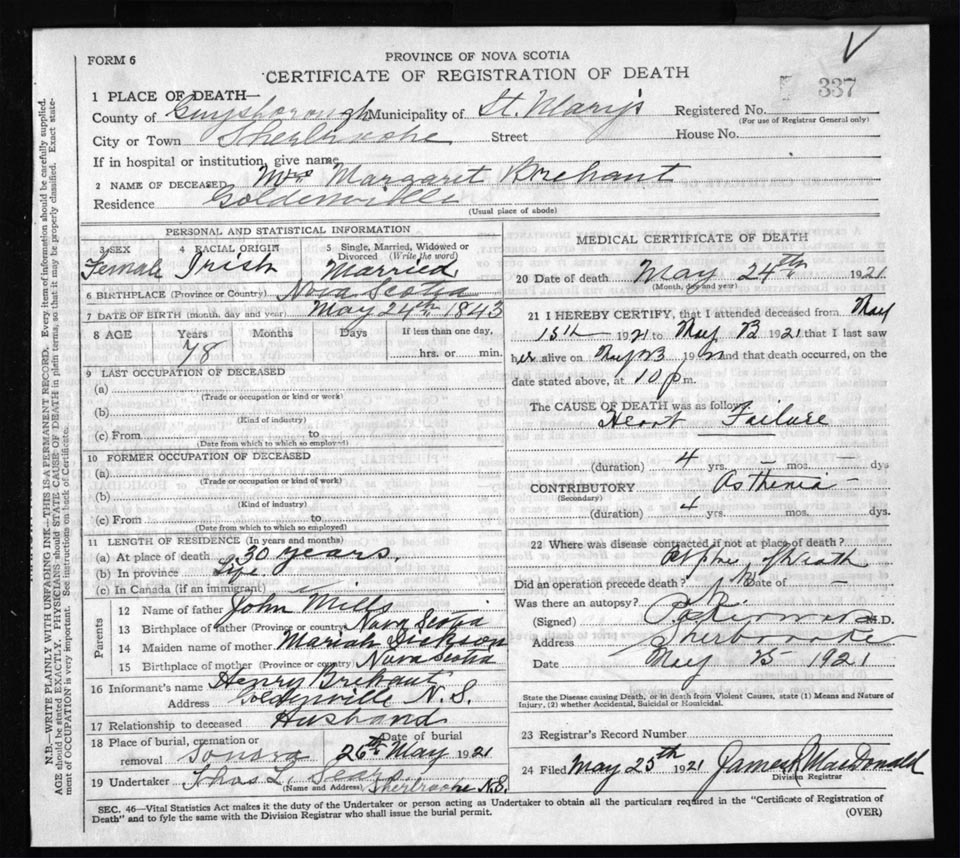 FORM 6
PROVINCE OF NOVA SCOTIA
CERTIFICATE OF REGISTRATION OF DEATH
337
1 PLACE OF DEATH—
County of Guysborough Municipality of St. Mary's Registered No.
(For use of Registrar General only)
City or Town Sherbrooke Street House No.
If in hospital or institution, give name
2 NAME OF DECEASED Mrs Margaret Brehaut
Residence Goldenville
(Usual place of abode)
PERSONAL AND STATISTICAL INFORMATION
3 SEX 4 RACIAL ORIGIN 5 Single, Married, Widowed or Divorced (Write the word)
Female Irish Married
6 BIRTHPLACE (Province or Country) Nova Scotia
7 DATE OF BIRTH (month, day and year) May 24th 1843
8 AGE Years Months Days If less than one day,
78 hrs. or min.
9 LAST OCCUPATION OF DECEASED
(a)
(Trade or occupation or kind or work)
(b)
(Kind of industry)
(c) From to
(Date from which to which so employed)
10 FORMER OCCUPATION OF DECEASED
(a)
(Trade or occupation or kind of work)
(b)
(Kind of industry)
(c) From to
(Date from which to which so employed)
11 LENGTH OF RESIDENCE (In years and months)
(a) At place of death 30 years.
(b) In province Life
(c) In Canada (if an immigrant) —
Parents
12 Name of father John Mills
13 Birthplace of father (Province or country) Nova Scotia
14 Maiden name of mother Mariah Dickson
15 Birthplace of mother (Province or country) Nova Scotia
16 Informant's name Henry Brehaut
Address Goldenville N.S.
17 Relationship to deceased Husband
18 Place of burial, cremation or removal Sonora Date of burial 26th May 1921
19 Undertaker Thos L.
(Name and Address) Sherbrooke N.S.
MEDICAL CERTIFICATE OF DEATH
20 Date of death May 24th 1921
(Month, day and year)
21 I HEREBY CERTIFY, that I attended deceased from May
15th 1921 to May 1921 that I last saw
her alive on May 19 and that death occurred, on the
date stated above, at 10 p m.
The CAUSE OF DEATH was as follows
Heart Failure
(duration) 4 yrs. – mos. – dys
CONTRIBUTORY Asthenia –
(Secondary)
(duration) 4 yrs. mos. dys.
22 Where was disease contracted if not at place of death?
of Death
Did an operation precede death? Date of —
Was there an autopsy?
(Signed) M.D.
Address Sherbrooke
Date May 25 1921
State the Disease causing Death, or in death from Violent Causes, state (1) Means and Nature of
Injury, (2) whether Accidental, Suicidal or Homicidal.
23 Registrar's Record Number
24 Filed May 25th 1921 James MacDonald
Division Registrar
SEC. 46—Vital Statistics Act makes it the duty of the Undertaker or person acting as Undertaker to obtain all the particulars required in the "Certificate of Registration of
Death" and to fyle the same with the Division Registrar who shall issue the burial permit. (OVER)
N.B.—WRITE PLAINLY WITH UNFADING INK—THIS IS A PERMANENT RECORD. Every item of information should be carefully supplied.
AGE should be stated EXACTLY. PHYSICIANS should STATE CAUSE OF DEATH in plain terms, so that it may be properly classified. Exact state-
ment of OCCUPATION is very important. See instructions on back of Certificate.